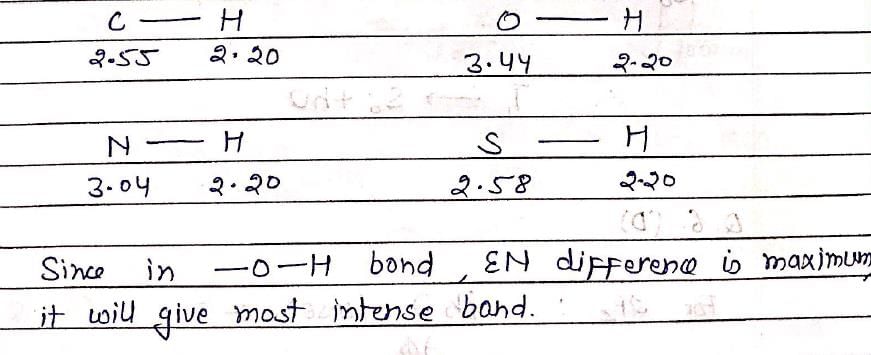 C — H O — H
2.55 2.20 3.44 2.20
N — H S — H
3.04 2.20 2.58 2.20
Since in —O—H bond, EN difference is maximum,
it will give most intense band.